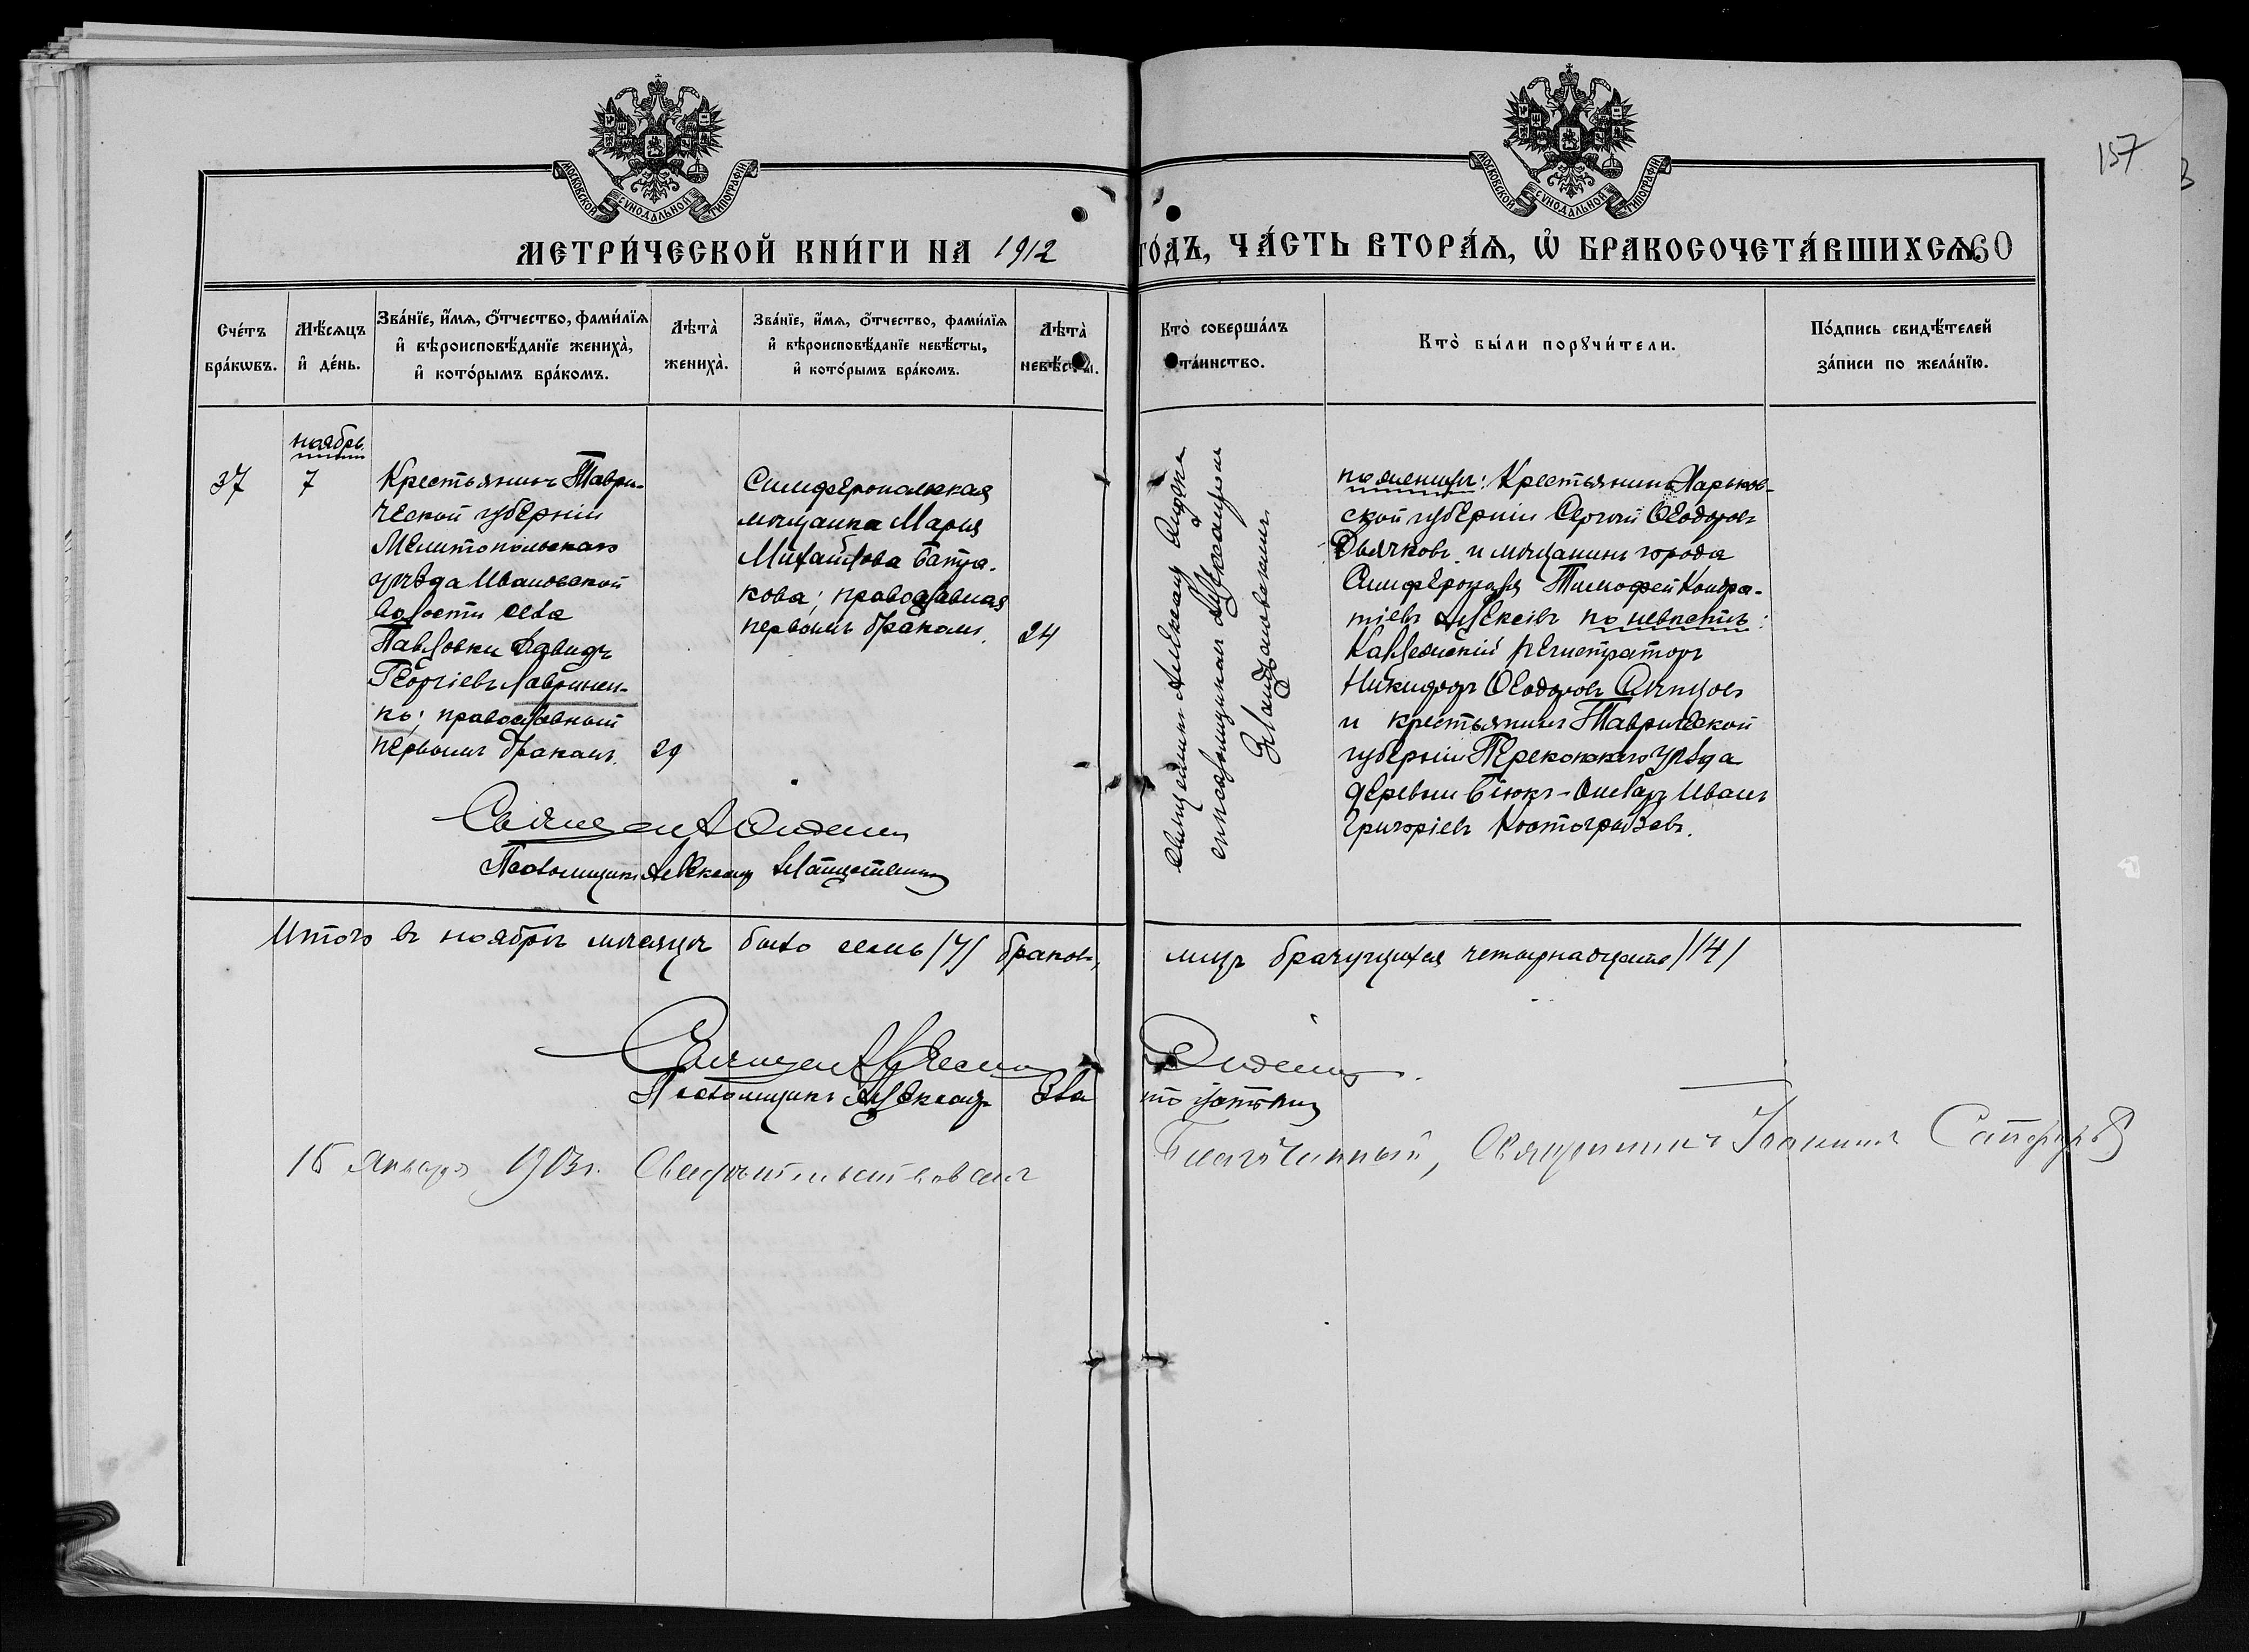 157
МОСКОВСКОЙ СѴНОДАЛЬНОЙ ТИПОГРАФІИ
МОСКОВСКОЙ СѴНОДАЛЬНОЙ ТИПОГРАФІИ
МЕТРИ́ЧЕСКОЙ КНИ́ГИ НА 1912
ГО́ДЪ, ЧА́СТЬ ВТОРА́Ѧ, Ѡ҆ БРАКОСОЧЕТА́ВШИХСѦ 60
Сче́тъ бра́кѡвъ.
Мѣ́сѧцъ и҆ де́нь.
Зва́нїе, и҆́мѧ, ѻ҆́тчество, фами́лїѧ
и҆ вѣроисповѣ́данїе жениха̀,
и҆ кото́рымъ бра́комъ.
Лѣта̀ жениха̀.
Зва́нїе, и҆́мѧ, ѻ҆́тчество, фами́лїѧ
и҆ вѣроисповѣ́данїе невѣ́сты,
и҆ кото́рымъ бра́комъ.
Лѣта̀ невѣ́сты.
Кто̀ соверша́лъ та́инство.
Кто̀ бы́ли порꙋчи́тели.
По́дпись свидѣ́телей
за́писи по жела́нїю.
ноябрь
37
7
Крестьянинъ Таври-
ческой губерніи
Мелитопольскаго
уѣзда Ивановской
волости села
Павловки Давидъ
Георгіевъ Лавринен-
ко; православный
первымъ бракомъ.
29
Симферопольская
мѣщанка Марія
Михайлова Батра-
кова; православная
первымъ бракомъ.
24
Священникъ Александръ
съ псаломщикомъ Александромъ
по женихѣ: Крестьянинъ Харьков-
ской губерніи Сергѣй Ѳеодоровъ
Дьячковъ и мѣщанинъ города
Симферополя Тимофей Кондра-
тіевъ Алексѣевъ по невѣстѣ:
Коллежскій регистраторъ
Никифоръ Ѳеодоровъ
и крестьянинъ Таврической
губерніи Перекопскаго уѣзда
деревни Біюкъ-Онларъ Иванъ
Григоріевъ Костогрызовъ.
Псаломщикъ Александръ
Итого въ ноябрѣ мѣсяцѣ было семь /7/ браковъ,
лицъ брачущихся четырнадцать /14/
Псаломщикъ Александръ
15 января 1913 г. Свидѣтельствовалъ
Благочинный, Священникъ